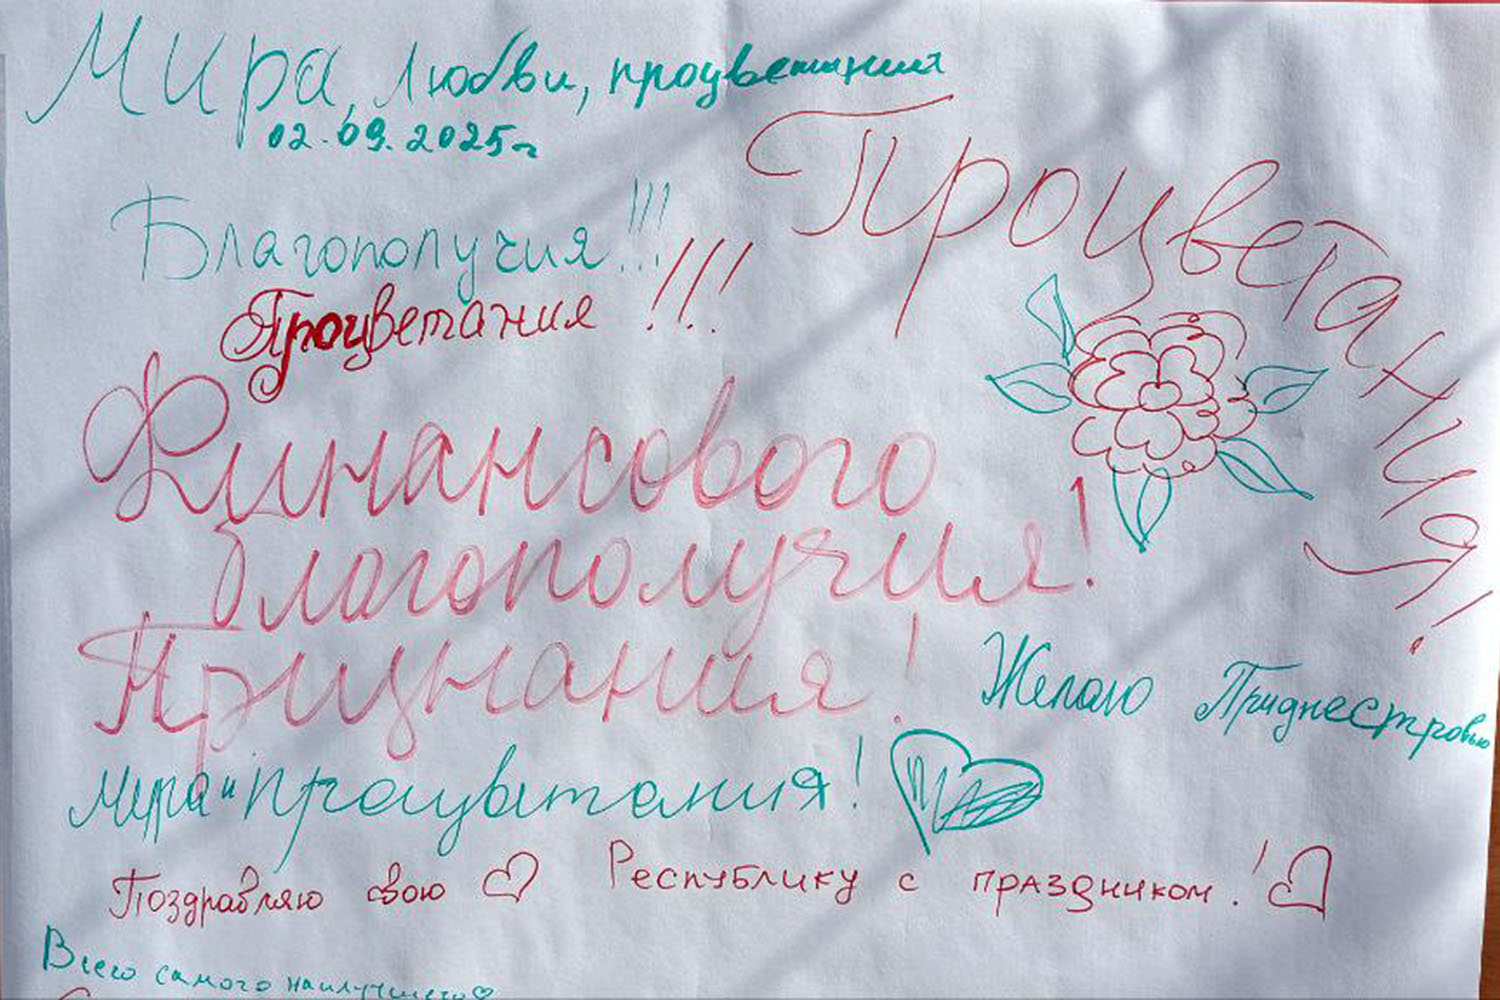 Мира, любви, процветания
02.09.2025г
Процветания!
Благополучия!!!
Процветания!!!
Финансового
благополучия!
Признания!
Желаю Приднестровью
Мира и процветания!
Поздравляю свою Республику с праздником!
Всего самого наилучшего